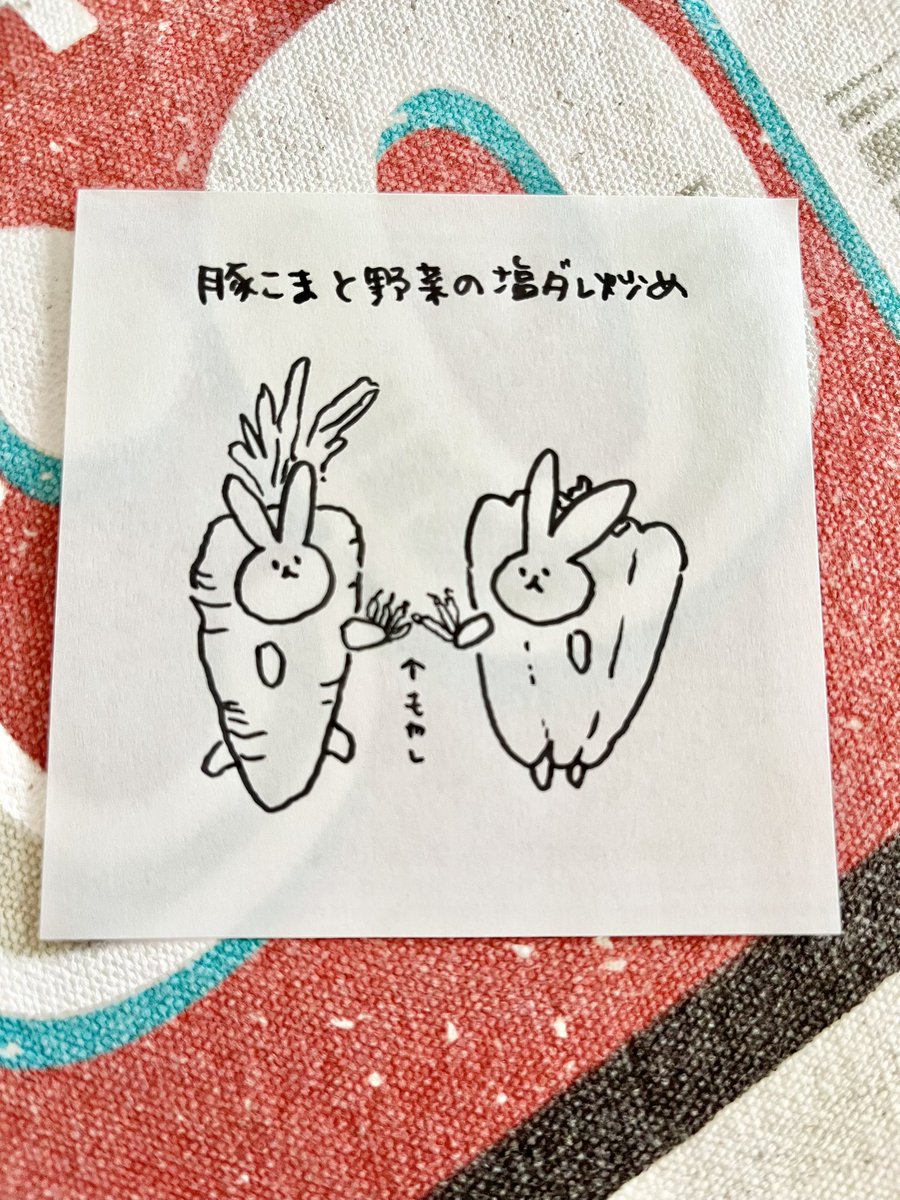 豚こまと野菜の塩ダレ炒め
↑もやし